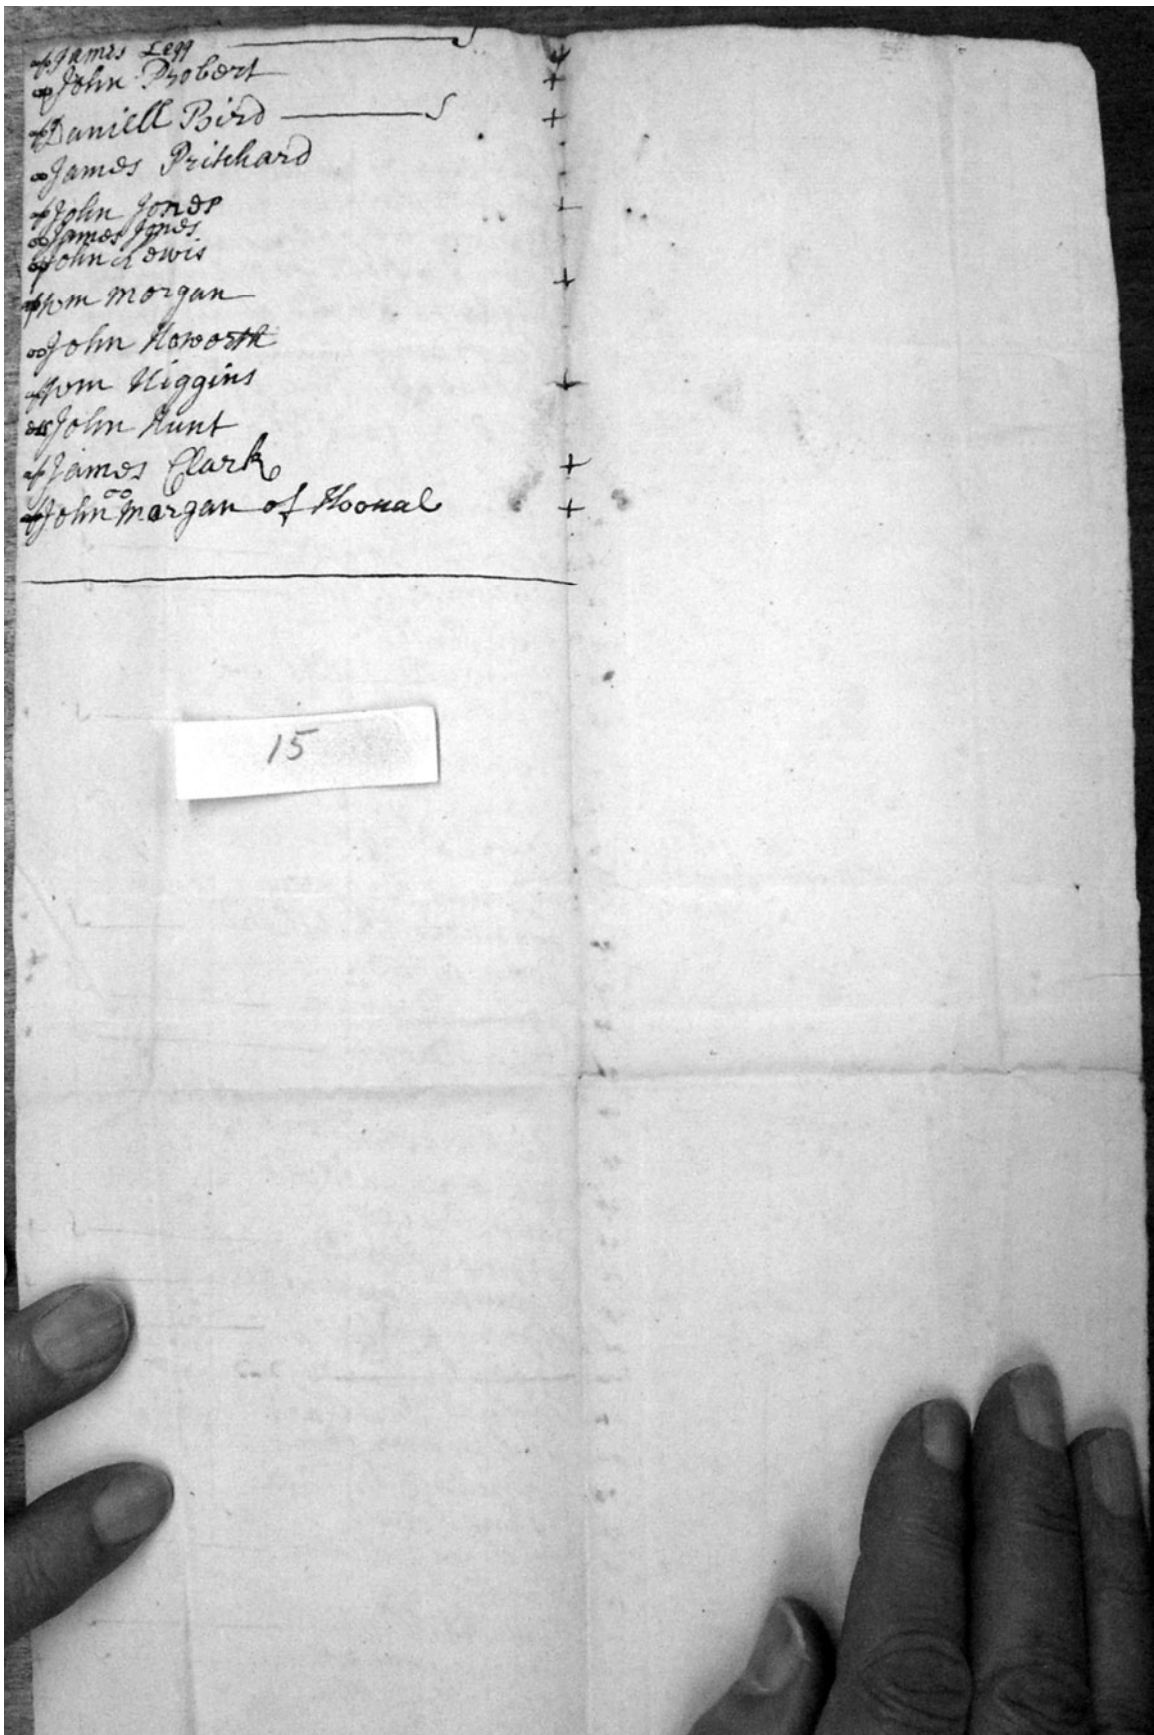 James Legg ——— s +
John Probert +
Daniell Bird ——— s +
James Pritchard
John Jones +
James Jones
John Lewis
Wm Morgan +
John Howorth
Wm Higgins +
John Hunt
James Clark +
John Morgan of +
15